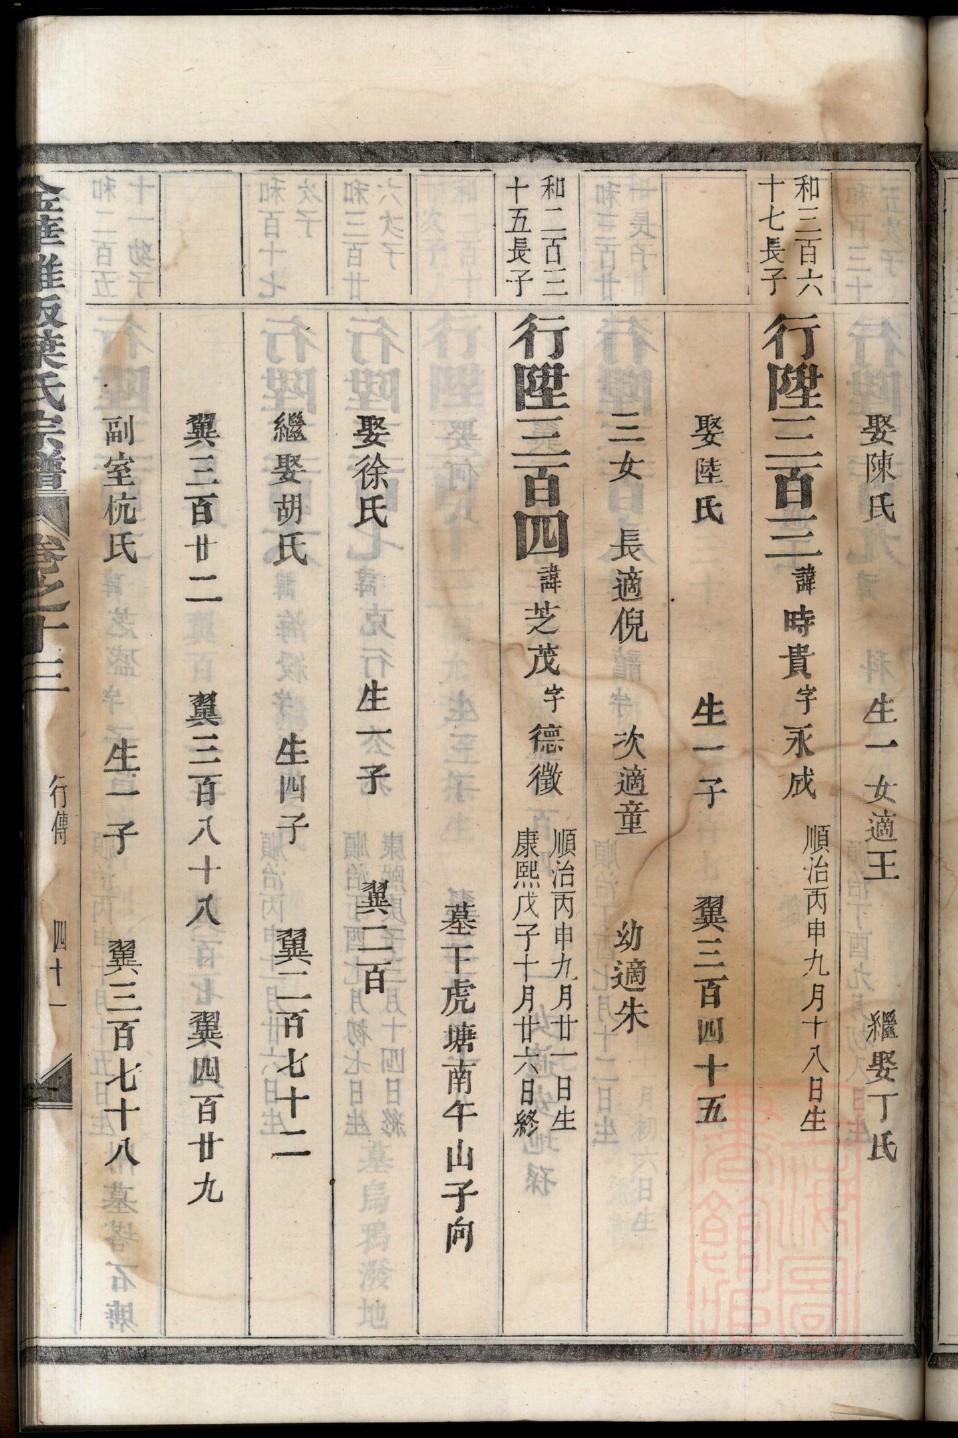 娶陳氏 生一女適王 繼娶丁氏
和三百六十七長子 行陞三百三 諱時貴字永成 順治丙申九月十八日生
娶陸氏 生一子 翼三百四十五
三女 長適倪 次適童 幼適朱
和二百三十五長子 行陞三百四 諱芝茂字德徵 順治丙申九月廿一日生 康熙戊子十月廿六日終
墓干虎塘南午山子向
娶徐氏 生一子 翼二百
繼娶胡氏 生四子 翼二百七十二
翼三百廿二 翼三百八十八 翼四百廿九
副室杭氏 生一子 翼三百七十八
葉氏宗譜 卷之十三 行傳 四十一